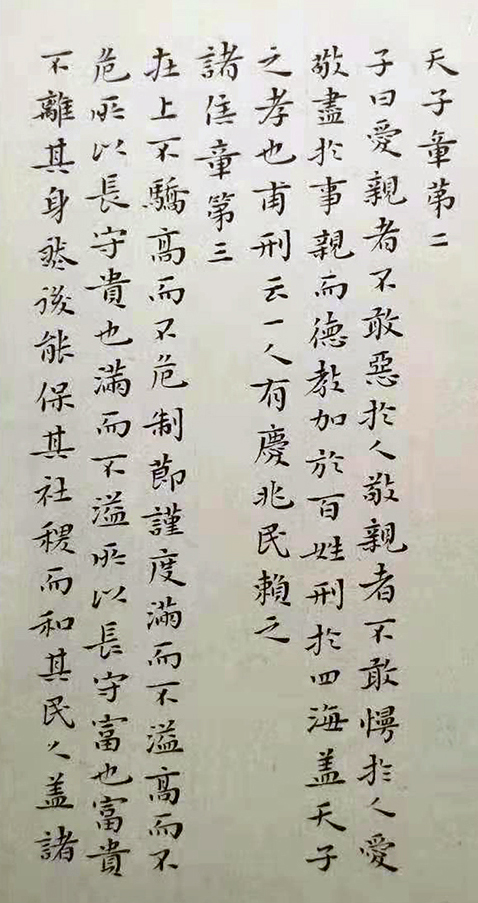 天子章第二
子曰愛親者不敢惡於人敬親者不敢慢於人愛
敬盡於事親而德教加於百姓刑於四海蓋天子
之孝也甫刑云一人有慶兆民賴之
諸侯章第三
在上不驕高而不危制節謹度滿而不溢高而不
危所以長守貴也滿而不溢所以長守富也富貴
不離其身然後能保其社稷而和其民人蓋諸